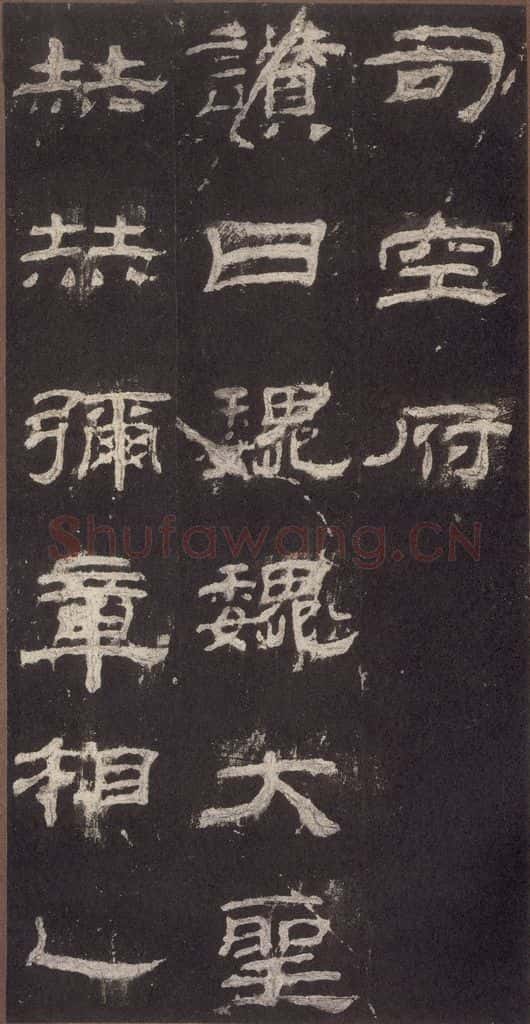 司空府
讚曰魏魏大聖
赫赫彌章相乙
Shufawang.CN